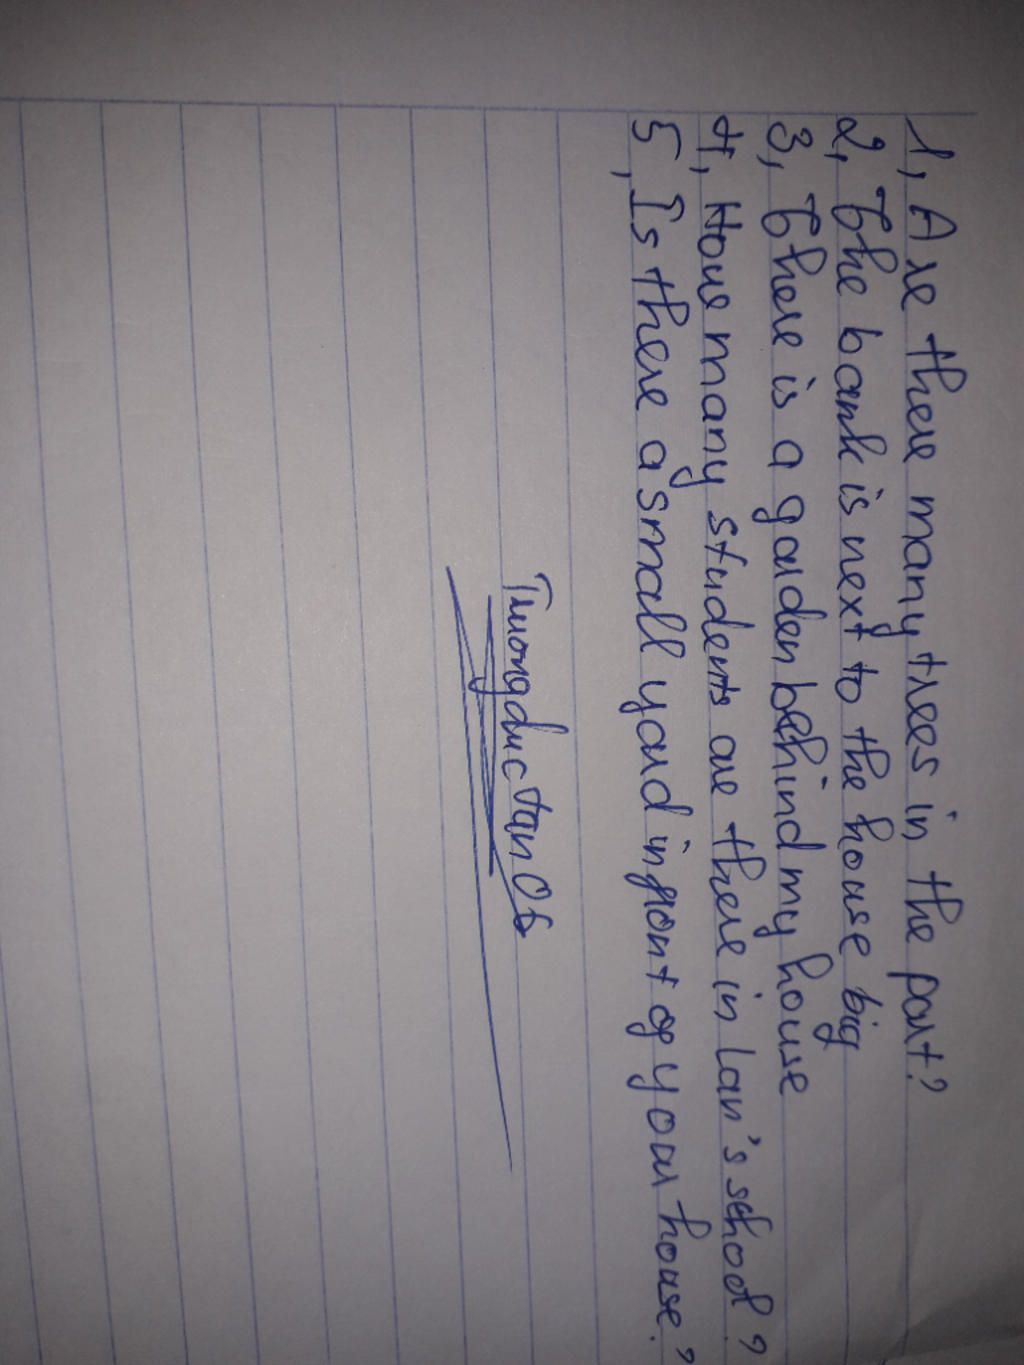 1, Are there many trees in the part?
2, The bank is next to the house big
3, There is a garden behind my house
4, How many students are there in Lan's school?
5, Is there a small yard in front of your house?
Truong duc tan 06